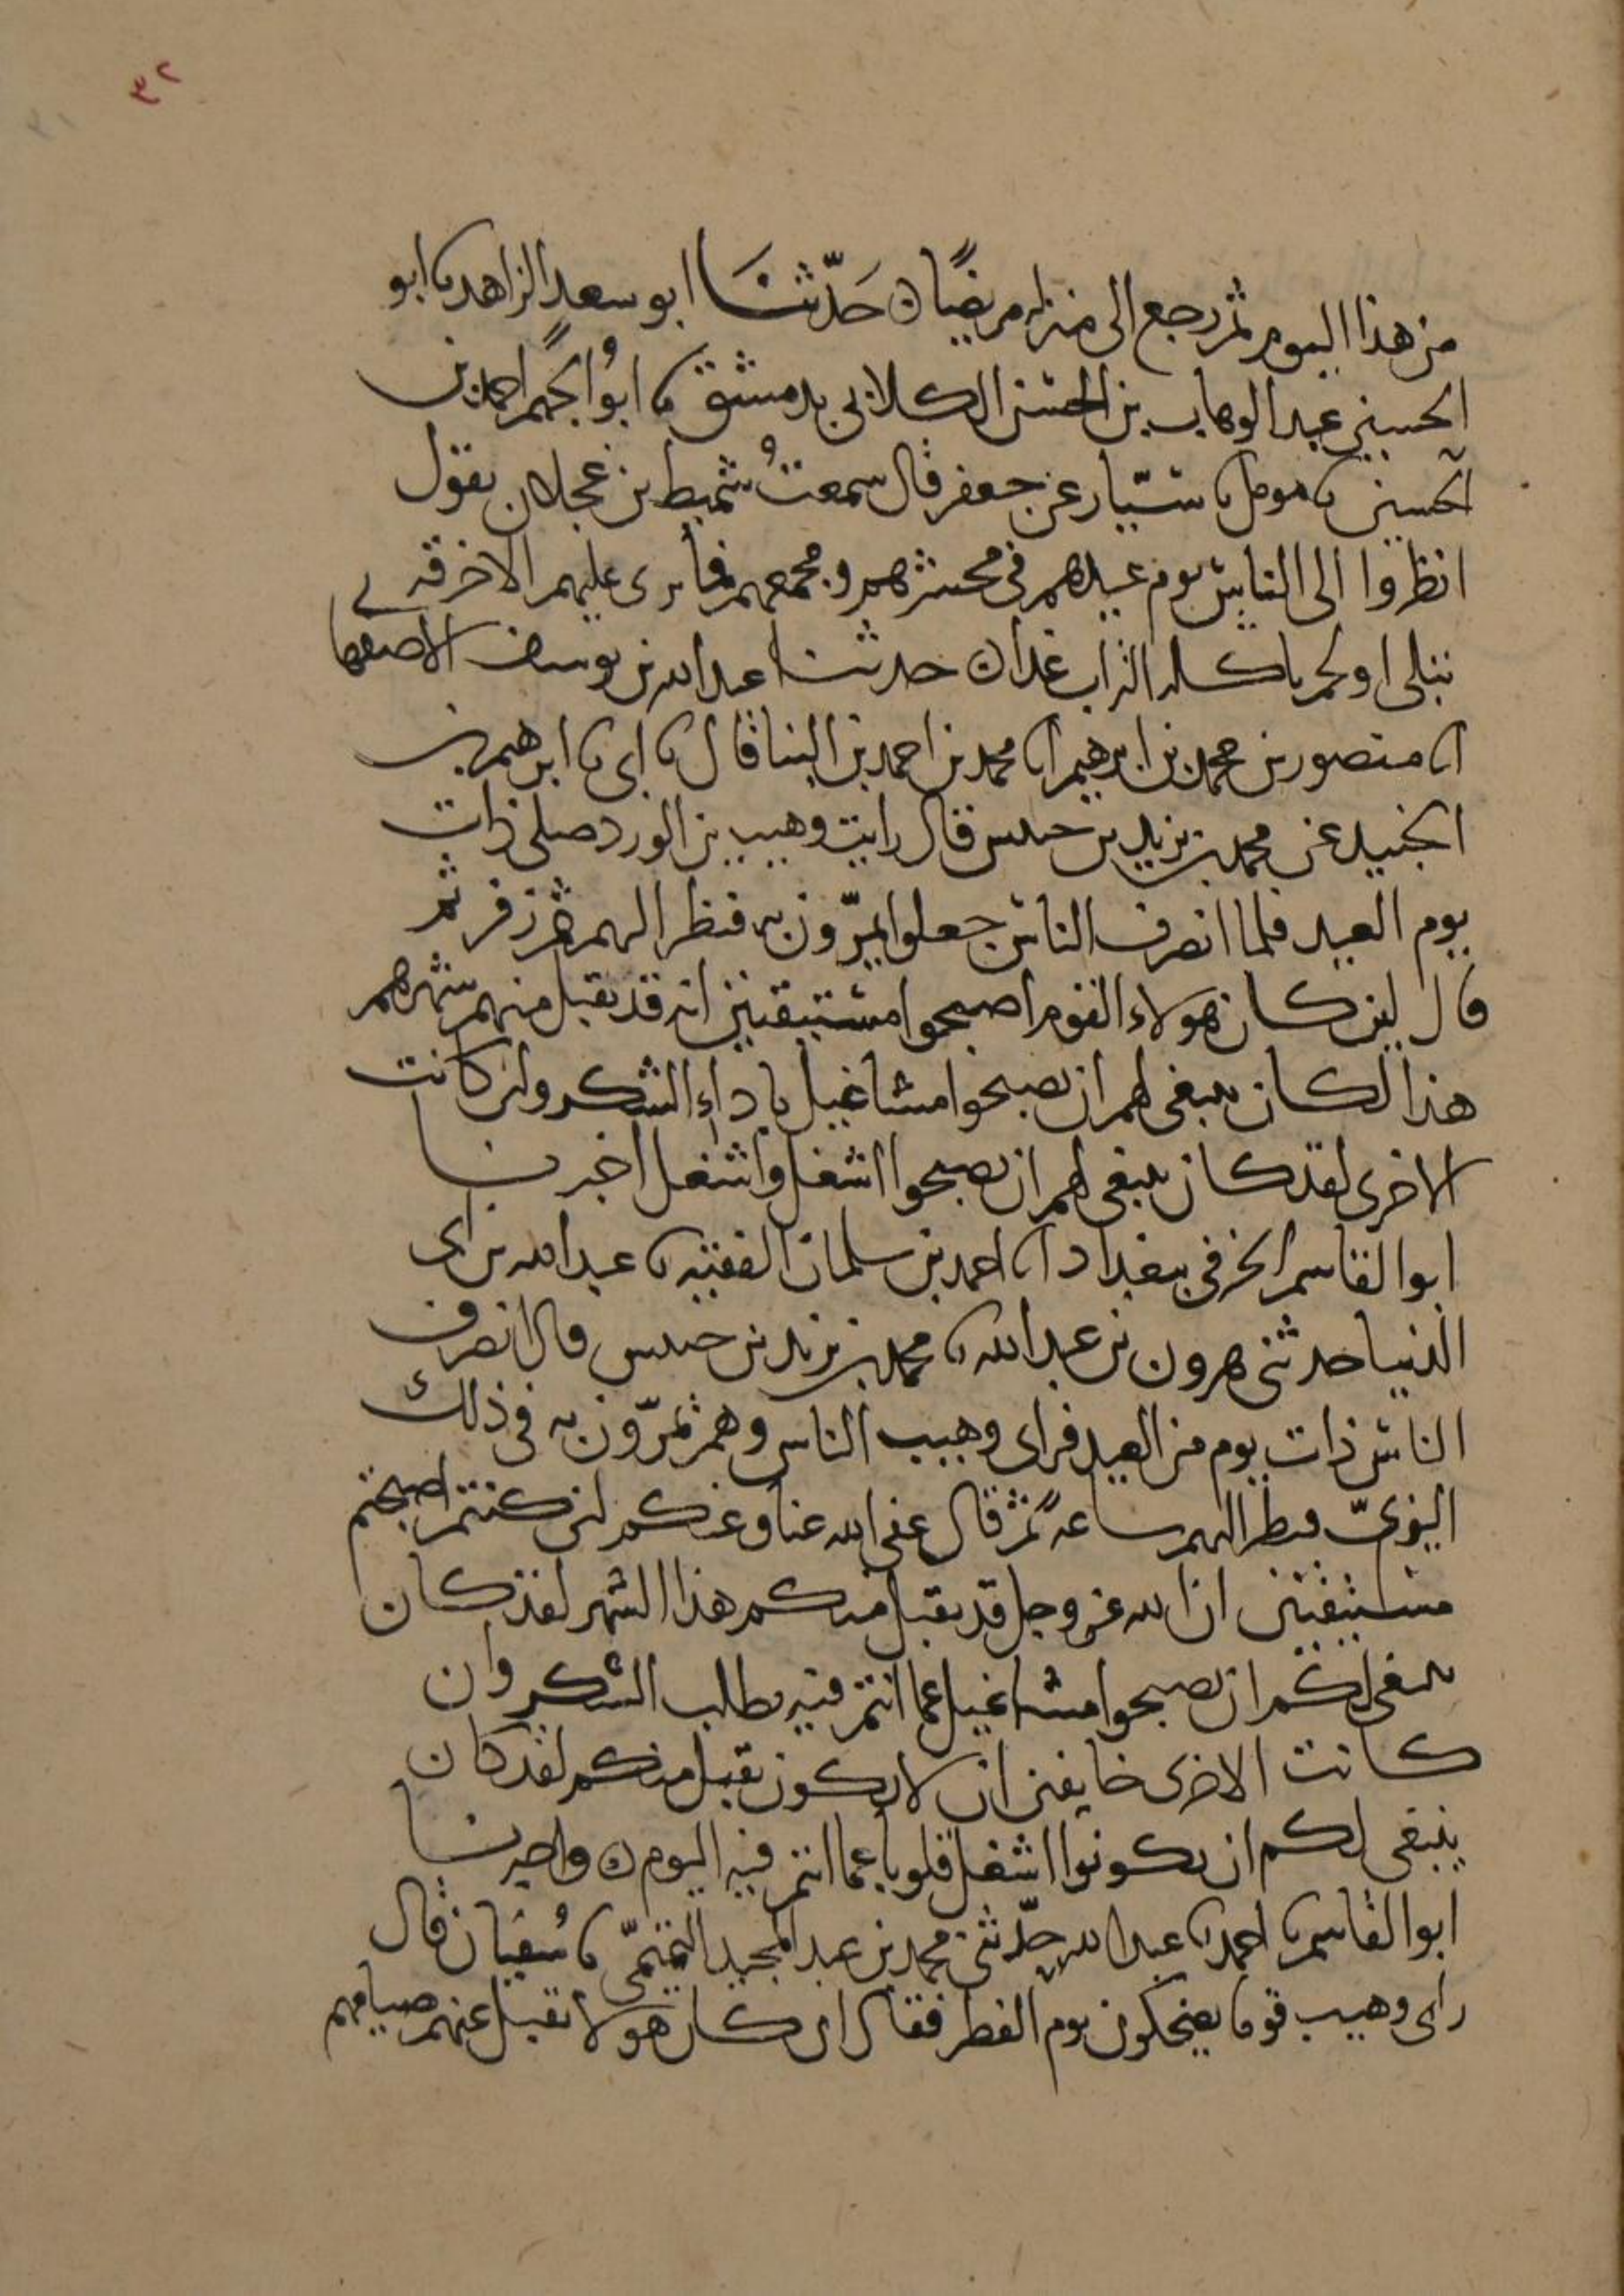 ٣٢
من هذا اليوم ثم رجع الى منزله مريضًا ن حَدّثنَا ابو سعد الزاهد نا ابو
الحسين عبد الوهاب بن الحسن الكلابي بدمشق نا ابُو الجهم احمد بن
الحسين نا مومل نا سيّار عن جعفر قال سمعتُ شميط بن عجلان يقول
انظروا الى الناس يوم عيدهم في محشرهم ومجمعهم فما يرى عليهم الا خرقه
تبلى او لحم ياكله التراب غدا ن حدثنا عبد الله بن يوسف الاصفها
انا منصور بن محمد بن ابرهيم انا محمد بن احمد بن البنا قال نا ابي نا ابرهيم بن
الجنيد عن محمد بن يزيد بن خنيس قال رايت وهيب بن الورد صلى ذات
يوم العيد فلما انصرف الناس جعلوا يمرّون به فنظر اليهم ثم زفر ثم
قال لين كان هولاء القوم اصبحوا مستيقنين انه قد تقبل منهم شهرهم
هذا لكان ينبغي لهم ان يصبحوا مشاغيل باداء الشكر ولئن كانت
الاخرى لقد كان ينبغي لهم ان يصبحوا اشغل واشغل اخبرنا
ابو القاسم الخرقي ببغداد انا احمد بن سلمان الفقيه نا عبد الله بن ابي
الدنيا حدثني هرون بن عبد الله نا محمد بن يزيد بن خنيس قال انصرف
الناس ذات يوم من العيد فراى وهيب الناس وهم يمرّون به في ذلك
الزيّ فنظر اليهم ساعةً ثم قال عفى الله عنا وعنكم لئن كنتم اصبحتم
مستيقنين ان الله عز وجل قد تقبل منكم هذا الشهر لقد كان
ينبغي لكم ان تصبحوا مشاغيل عما انتم فيه بطلب الشكر وان
كانت الاخرى خايفين ان لا يكون تقبل منكم لقد كان
ينبغي لكم ان تكونوا اشغل قلوبا عما انتم فيه اليوم ن واخبرنا
ابو القاسم نا احمد نا عبد الله حدّثني محمد بن عبد المجيد التميمي نا سُفيان قال
راى وهيب قوما يضحكون يوم الفطر فقال ان كان هولا تقبل عنهم صيامهم